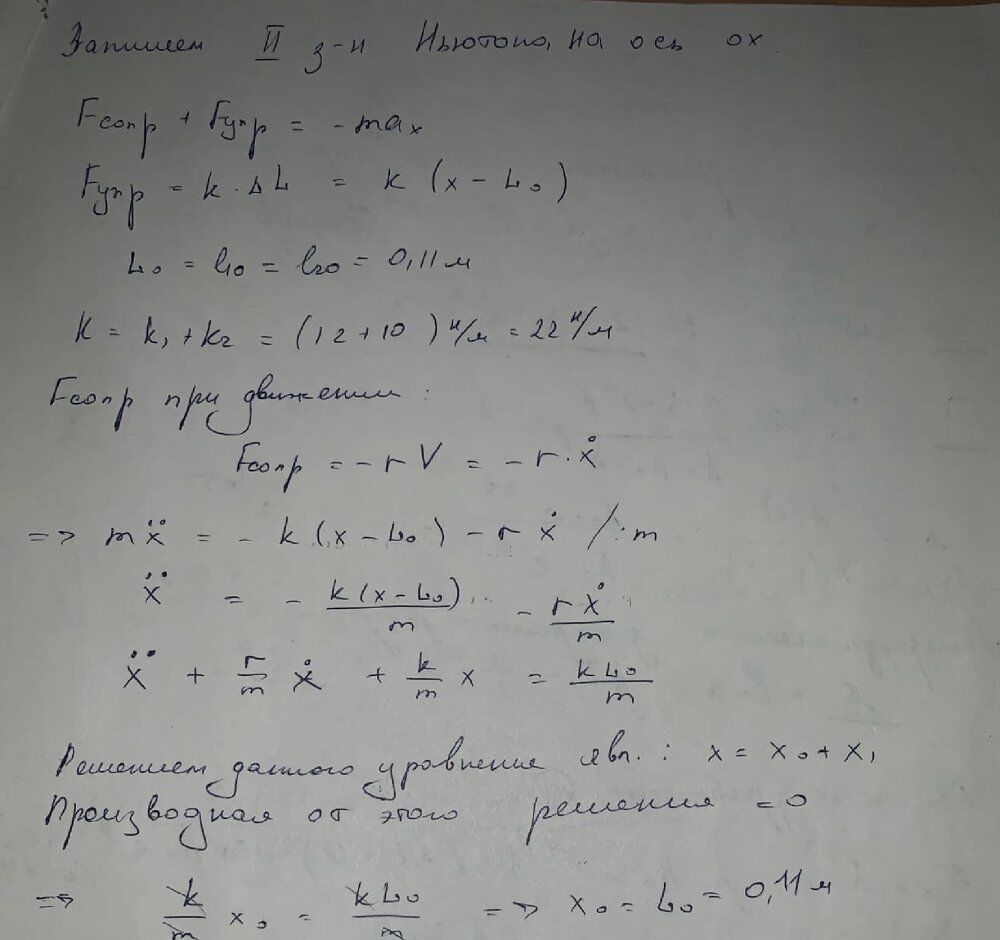 Запишем II з-н Ньютона, на ось ох
Fсопр + Fупр = - maₓ
Fупр = k · ΔL = k (x - L₀)
L₀ = l₁₀ = l₂₀ = 0,11 м
K = k₁ + k₂ = (12 + 10) н/м = 22 н/м
Fсопр при движении :
Fсопр = - r V = - r · ẋ
=> mẍ = - k (x - L₀) - r ẋ /: m
ẍ = - k(x - L₀)/m - rẋ/m
ẍ + r/m ẋ + k/m x = kL₀/m
Решением данного уравнения явл. : x = x₀ + x₁
Производная от этого решения = 0
=> k/m x₀ = kL₀/m => x₀ = L₀ = 0,11 м